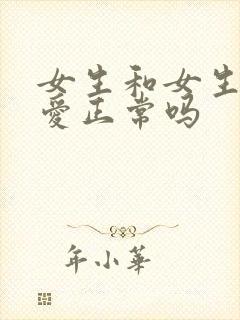 女生和女生
爱正常吗
年小華